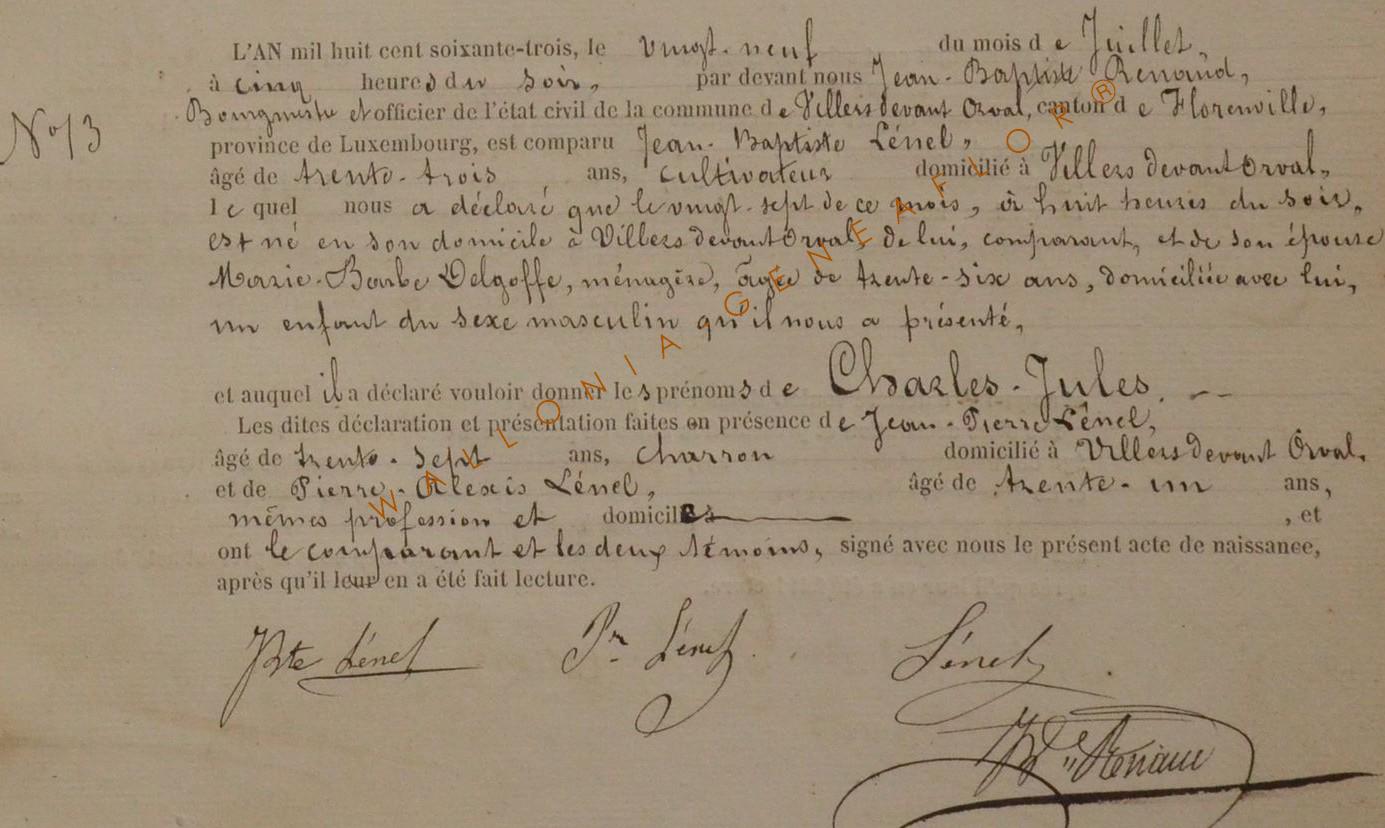 L'AN mil huit cent soixante-trois, le vingt-neuf du mois de Juillet,
à cinq heures du soir, par devant nous Jean-Baptiste Renaud,
N° 13
Bourgmestre et officier de l'état civil de la commune de Villers devant Orval, canton de Florenville,
province de Luxembourg, est comparu Jean-Baptiste Lénel,
âgé de trente-trois ans, cultivateur domicilié à Villers devant Orval,
lequel nous a déclaré que le vingt-sept de ce mois, à huit heures du soir,
est né en son domicile à Villers devant Orval, de lui, comparant, et de son épouse
Marie-Barbe Delgoffe, ménagère, âgée de trente-six ans, domiciliée avec lui,
un enfant du sexe masculin qu'il nous a présenté,
et auquel il a déclaré vouloir donner les prénoms de Charles-Jules.
Les dites déclaration et présentation faites en présence de Jean-Pierre Lénel,
âgé de trente-sept ans, charron domicilié à Villers devant Orval,
et de Pierre-Alexis Lénel, âgé de trente-un ans,
mêmes profession et domiciles, et
ont le comparant et les deux témoins, signé avec nous le présent acte de naissance,
après qu'il leur en a été fait lecture.
JBte Lénel Pr Lénel Lénel
JBte Renaud
WALLONIA GENEAFLOR®